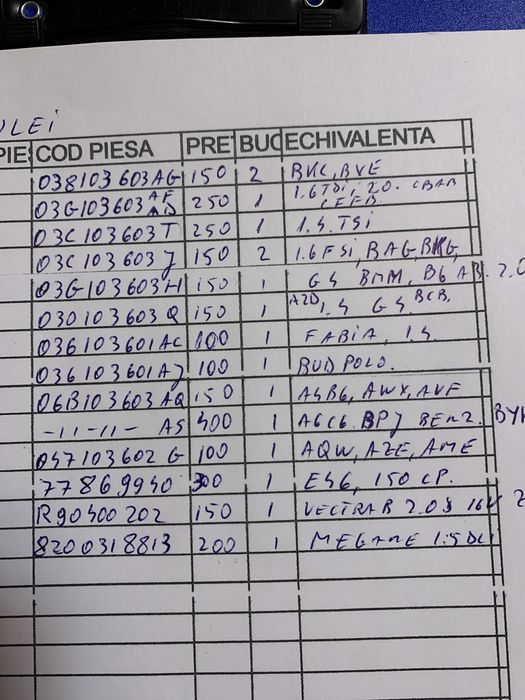 ULEI
PIES COD PIESA PRE BUC ECHIVALENTA
038103603AG 150 2 BKC, BVE
03G103603 AF AD 250 1 1.6TDi, 2.0. CBAB CFFB.
03C103603T 250 1 1.4.TSi
03C103603J 150 2 1.6FSi, BAG, BKG,
03G103603H 150 1 G4 BMM, B6 2.0
030103603Q 150 1 AZD 1.4 G4 BCB.
036103601AC 100 1 FABIA, 1.4.
036103601AJ 100 1 BUD POLO.
06B103603AQ 150 1 A4B6, AWX, AVF
-11-11- AS 400 1 A6C6 BPJ BENZ.
047103602G 100 1 AQW, AZE, AME
77869940 300 1 E46, 150 CP.
R90400202 150 1 VECTRA B 2.0i 16V
8200318813 200 1 MEGANE 1.5DCi